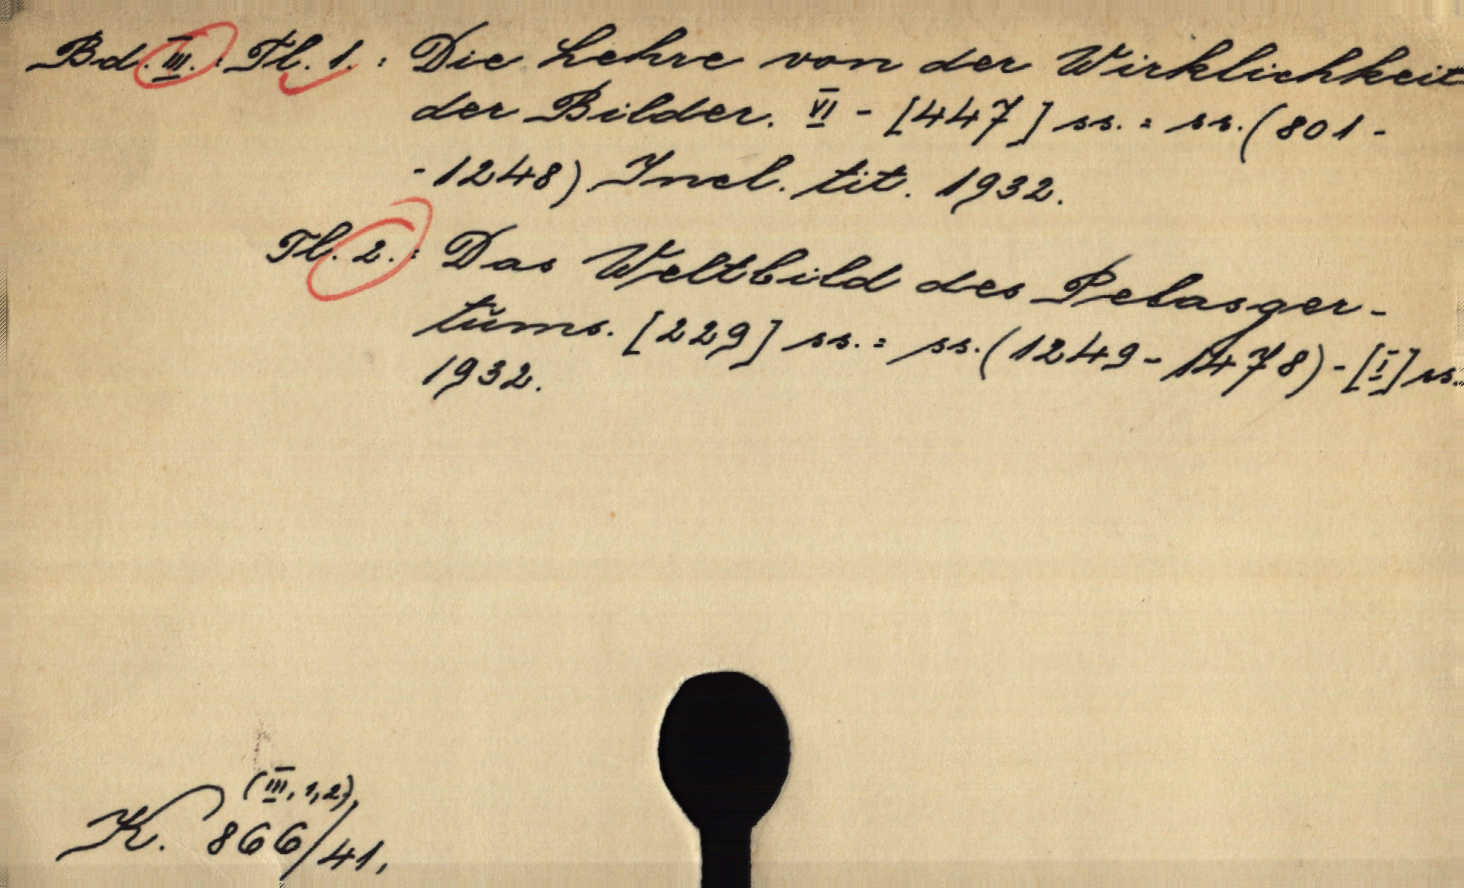 Bd. III. : Tl. 1. : Die Lehre von der Wirklichkeit
der Bilder. VI - [447] ss. = ss. (801 -
- 1248) Incl. tit. 1932.
Tl. 2. : Das Weltbild des Pelasger-
tums. [229] ss. = ss. (1249 - 1478) - [I] ss.
1932.
(III, 1, 2),
K. 866/41,